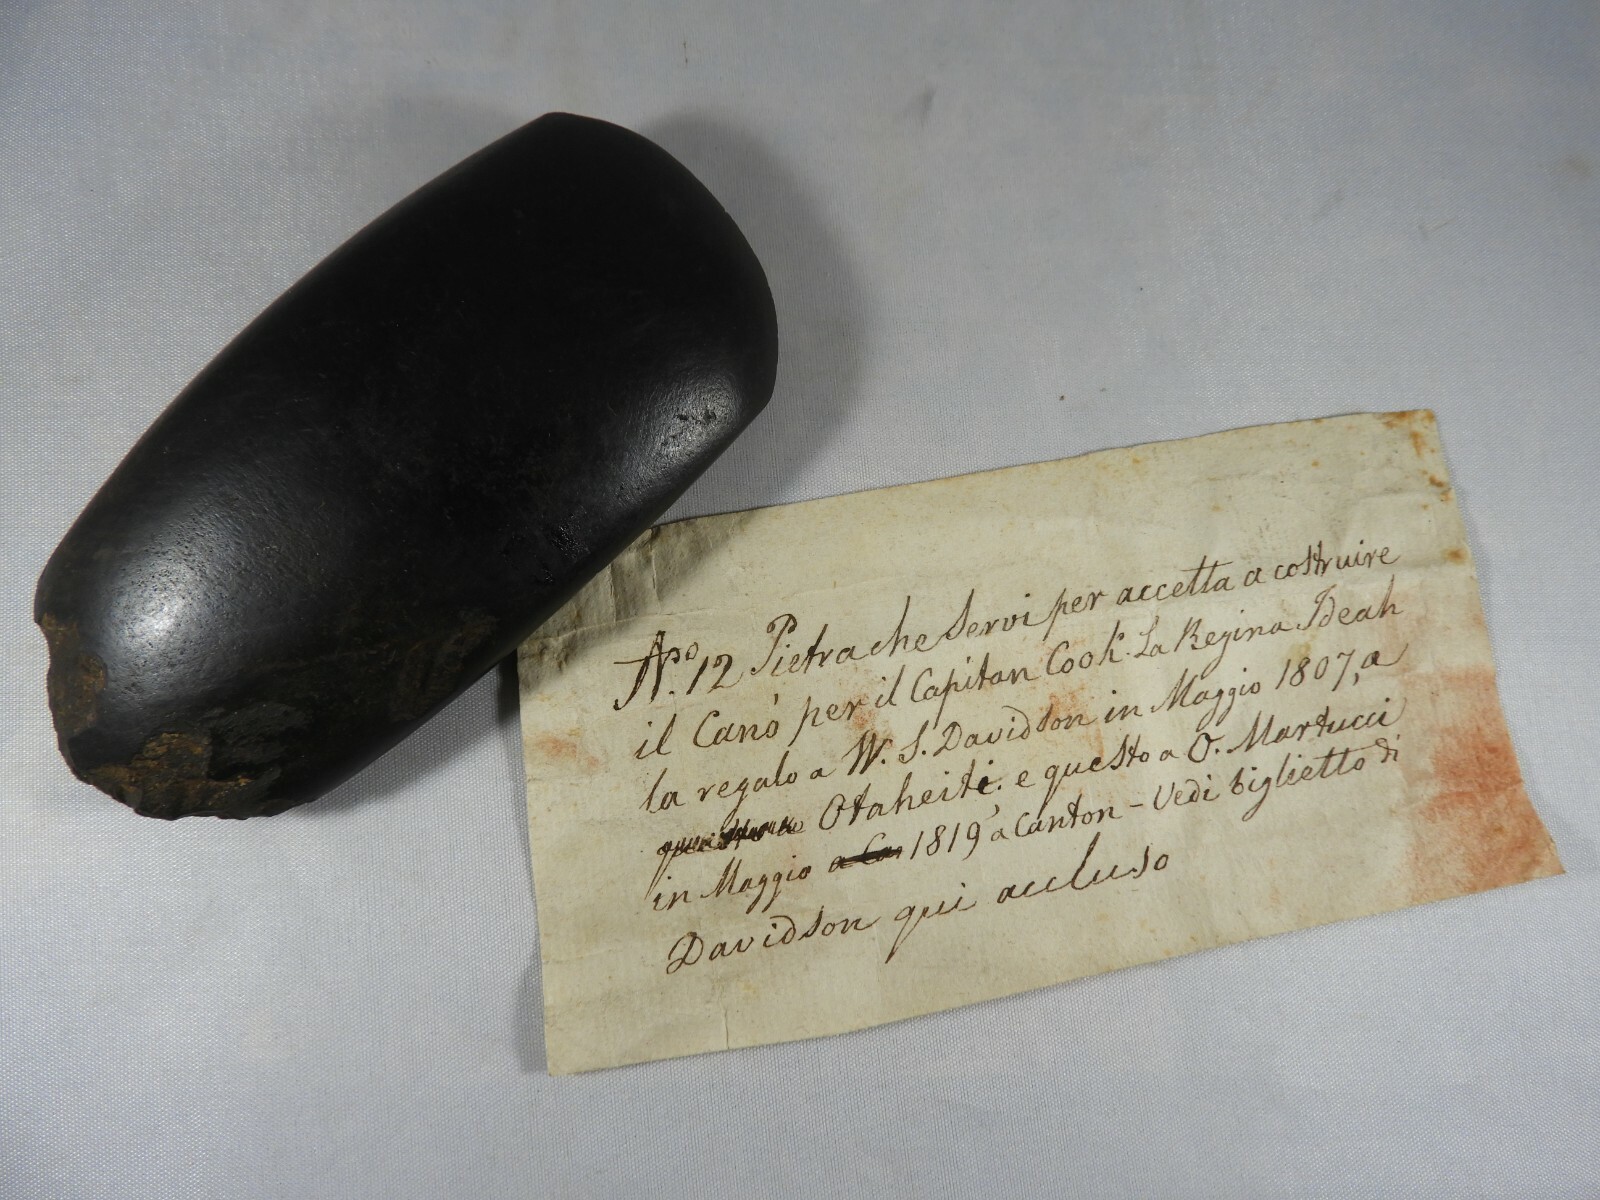 No. 12 Pietra che Servi per accetta a costruire
il Canò per il Capitan Cook. La Regina Ideah
la regalo a W. S. Davidson in Maggio 1807, a
Otaheiti. e questo a O. Martucci
in Maggio a Ca 1819, a Canton - Vedi biglietto di
Davidson qui accluso